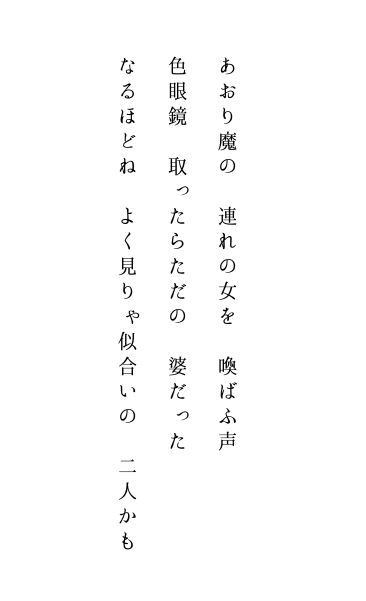 あおり魔の　連れの女を　喚ばふ声
色眼鏡　取ったらただの　婆だった
なるほどね　よく見りゃ似合いの　二人かも